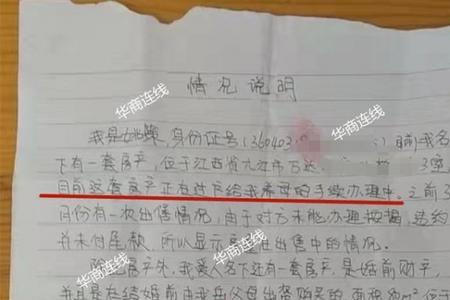 情况说明
华商连线
华商连线
我是姚臻,身份证号(360402
)目前我名
下有一套房产,位于江西省九江市万达
3室
目前这套房产正在过户给我岳母的手续办理中。之前3
月份有一次出售情况,由于对方未能办理按揭,违约
并未付尾款,所以显示房产在出售中的情况。
华商连线
除这房产外,我爱人名下还有一套房产,是婚前财产,
并且是在结婚前由我岳父母出资购买的,面积
m²,位于